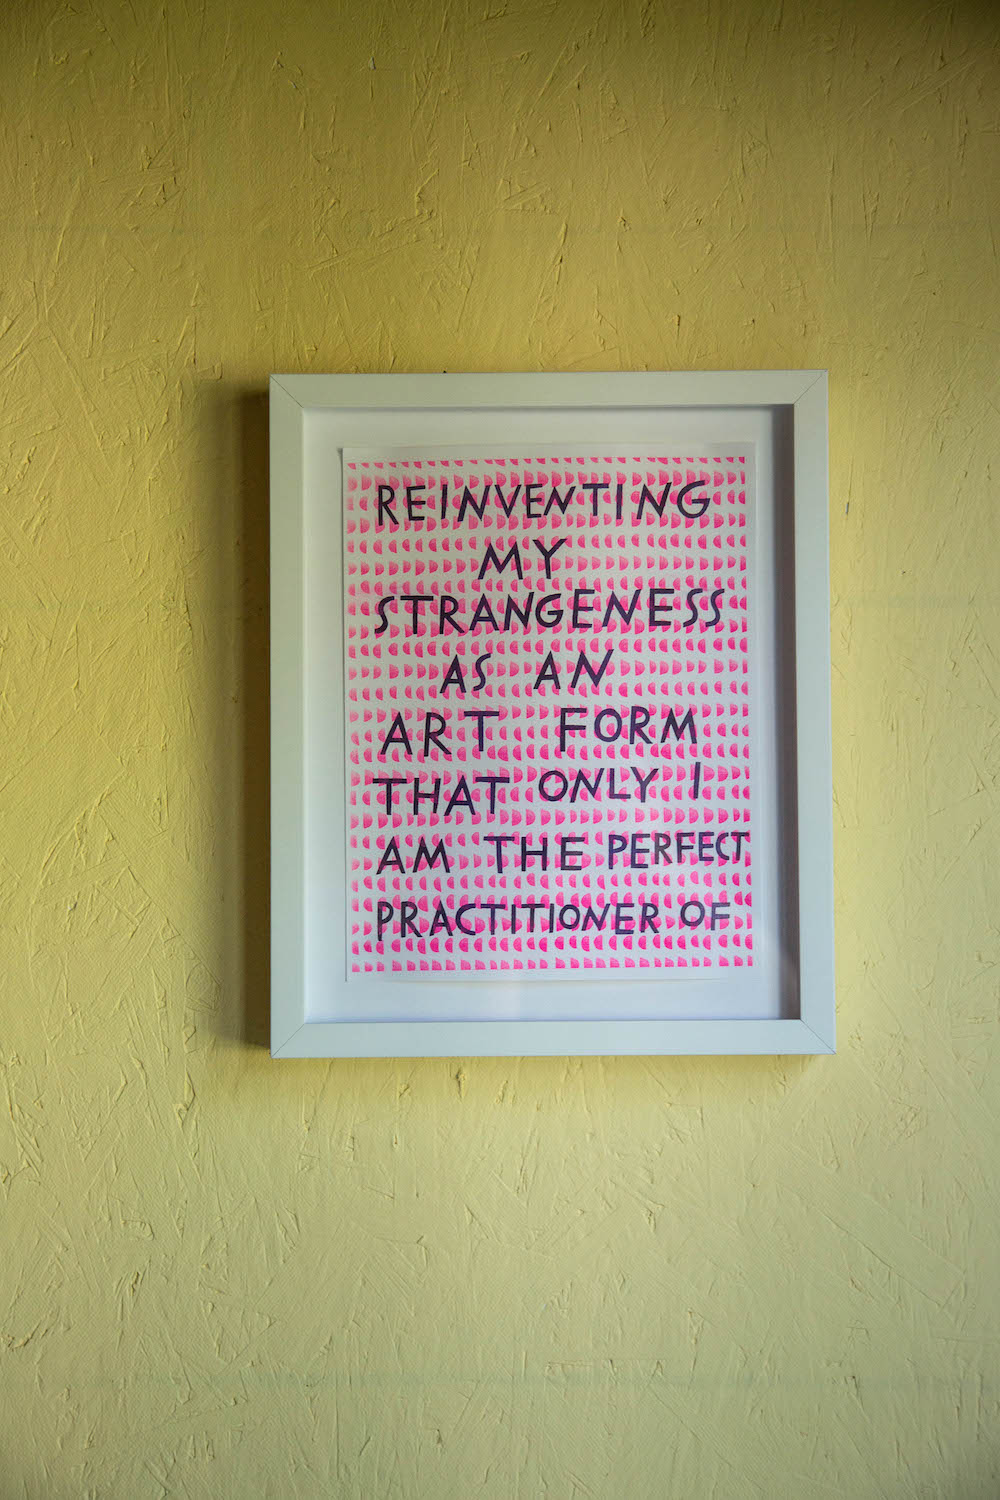 REINVENTING
MY
STRANGENESS
AS AN
ART FORM
THAT ONLY I
AM THE PERFECT
PRACTITIONER OF